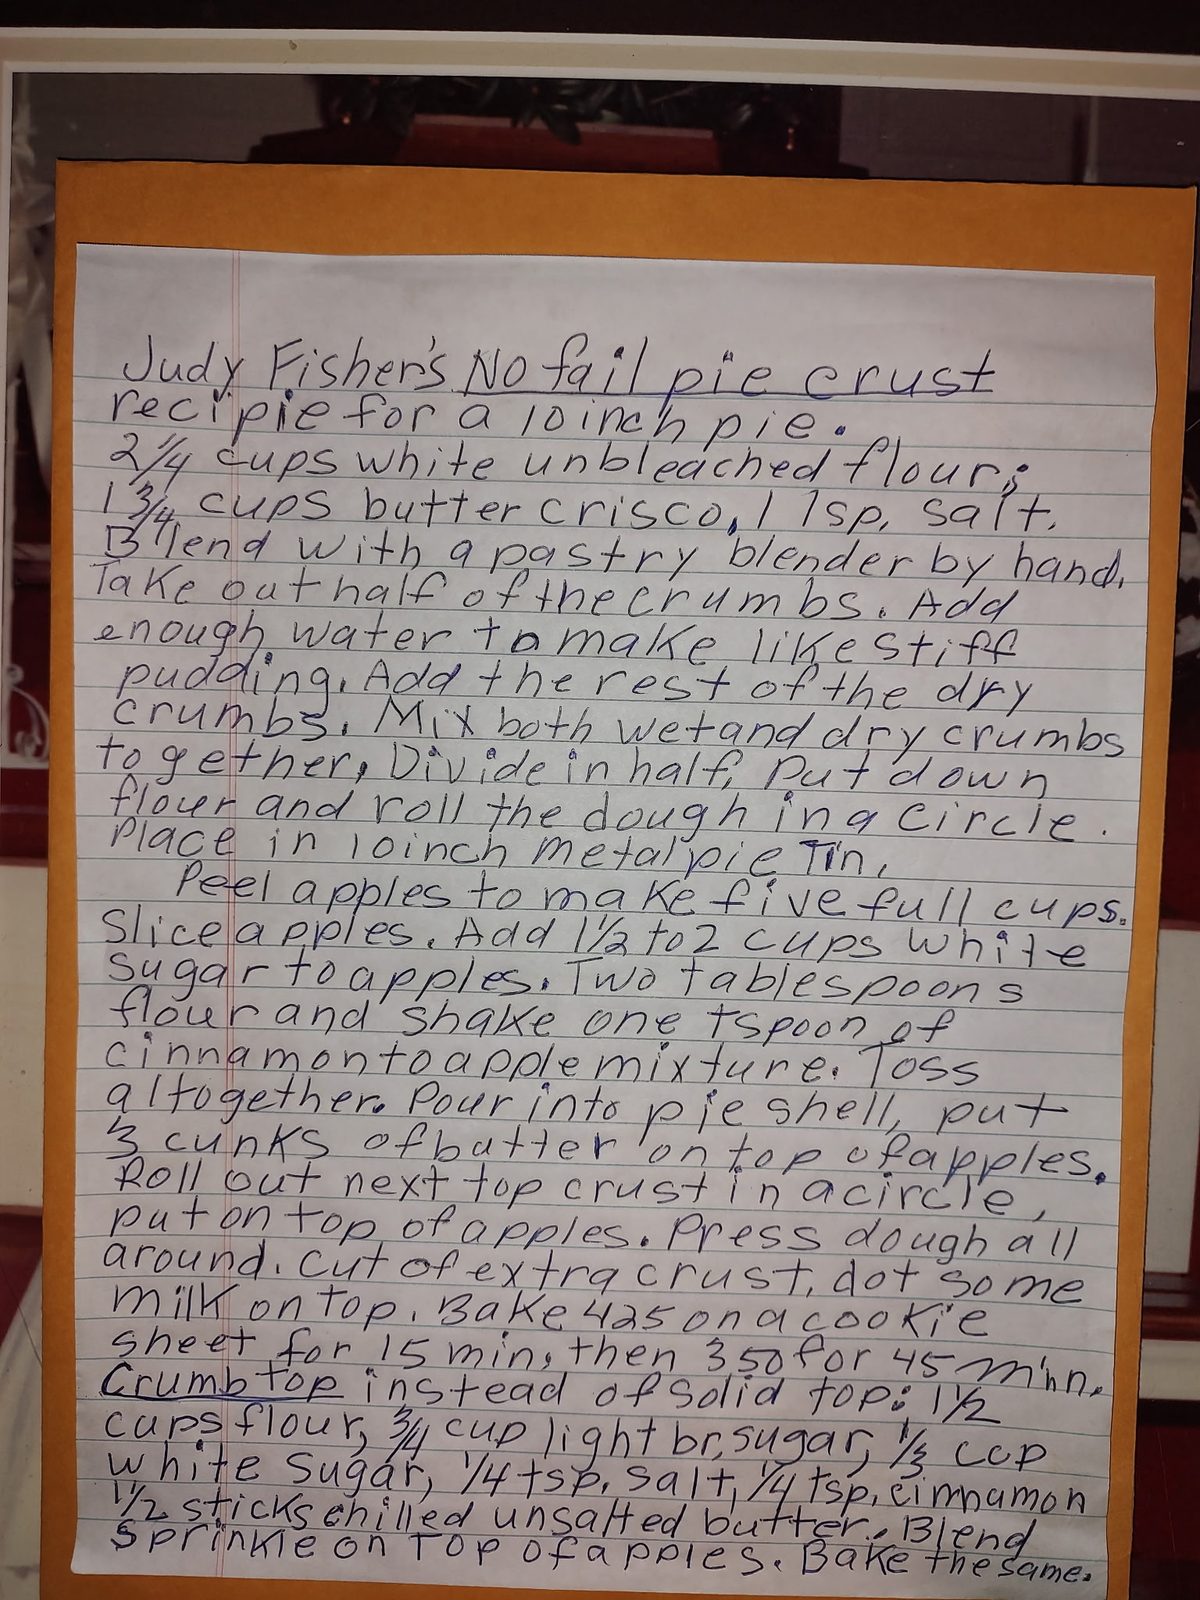 Judy Fisher's No fail pie crust
recipie for a 10 inch pie.
2 1/4 cups white unbleached flour;
1 3/4 cups butter crisco, 1 Tsp. salt.
Blend with a pastry blender by hand.
Take out half of the crumbs. Add
enough water to make like stiff
pudding. Add the rest of the dry
crumbs. Mix both wet and dry crumbs
together, Divide in half, Put down
flour and roll the dough in a circle.
Place in 10 inch metal pie Tin.
Peel apples to make five full cups.
Slice apples. Add 1 1/2 to 2 cups white
sugar to apples. Two tablespoons
flour and shake one tspoon of
cinnamon to apple mixture. Toss
altogether. Pour into pie shell, put
3 cunks of butter on top of apples.
Roll out next top crust in a circle,
put on top of apples. Press dough all
around. Cut of extra crust, dot some
milk on top. Bake 425 on a cookie
sheet for 15 min, then 350 for 45 min.
Crumb top instead of solid top: 1 1/2
cups flour, 3/4 cup light br, sugar, 1/3 cup
white sugar, 1/4 tsp. salt, 1/4 tsp. cinnamon
1 1/2 sticks chilled unsalted butter. Blend
Sprinkle on Top of apples. Bake the same.